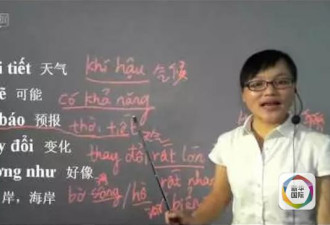 i tiết 天气 khí hậu 气候
ẽ 可能 có khả năng
báo 预报 thời tiết
y đổi 变化 thay đổi rất lớn
rất nha
ơng như 好像
岸，海岸 bờ sông/hồ biển